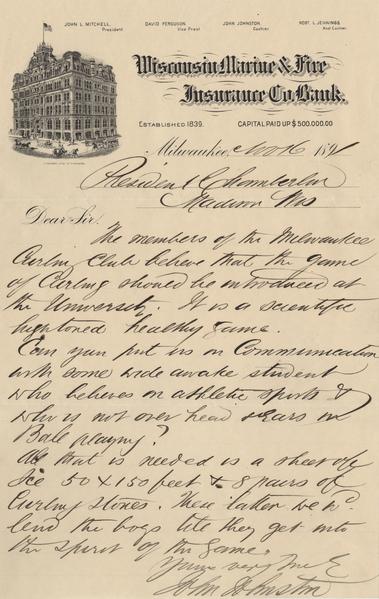 JOHN L. MITCHELL, DAVID FERGUSON, JOHN JOHNSTON, ROBT. L. JENNINGS,
President Vice Prest Cashier Asst Cashier
Wisconsin Marine & Fire
Insurance Co. Bank.
ESTABLISHED 1839. CAPITAL PAID UP $500,000.00
Milwaukee, Nov 16 1891
President Chamberlin
Madison Wis
Dear Sir!
The members of the Milwaukee
Curling Club believe that the game
of Curling should be introduced at
the University. It is a scientific
hightoned healthy game.
Can you put us in Communication
with some wide awake student
who believes in athletic sports &
who is not over head & ears in
Ball playing?
All that is needed is a sheet of
Ice 50 x 150 feet & 8 pairs of
Curling Stones. These latter we wd
lend the boys till they get into
the spirit of the game.
Yours very truly
John Johnston